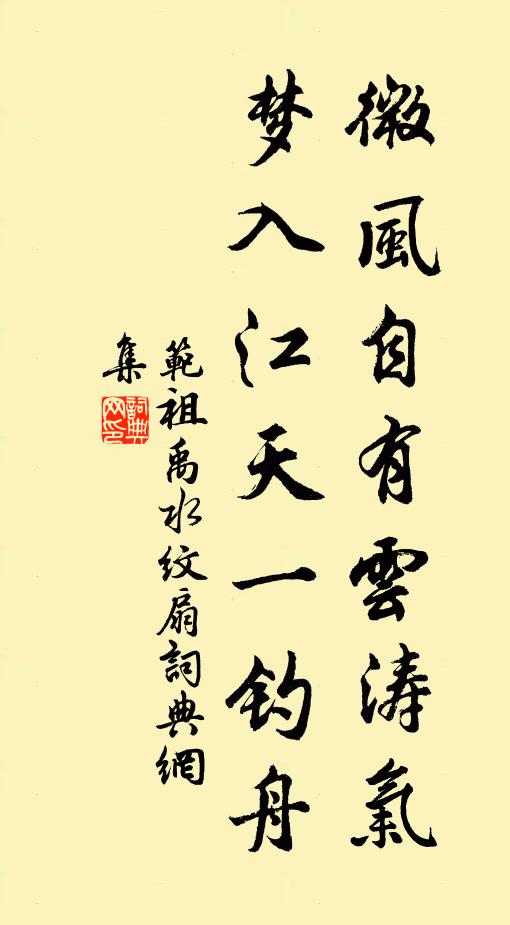 微風自有雲涛氣
梦入江天一钓舟
範祖禹水纹扇詞典網
集
詞典網印